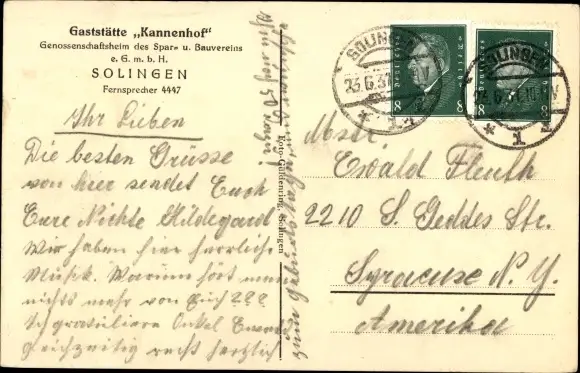 Gaststätte „Kannenhof"
Genossenschaftsheim des Spar- u. Bauvereins
e. G. m. b. H.
SOLINGEN
Fernsprecher 4447
Ihr Lieben
Die besten Grüsse
von hier sendet Euch
Eure Nichte Hildegard
Wir haben hier herrliche
Musik. Warum hört man
nichts mehr von Euch???
Ich gratuliere Onkel Ewald
gleichzeitig recht herzlich
zum Geburtstag
Foto-Güldenring, Solingen
Deutsches Reich
8 8
Deutsches Reich
8
SOLINGEN
23.6.31
* 1
SOLINGEN
23.6.31
* 1
Mstr.
Ewald Fleuth
2210 S. Geddes Str.
Syracuse N. Y.
Amerika